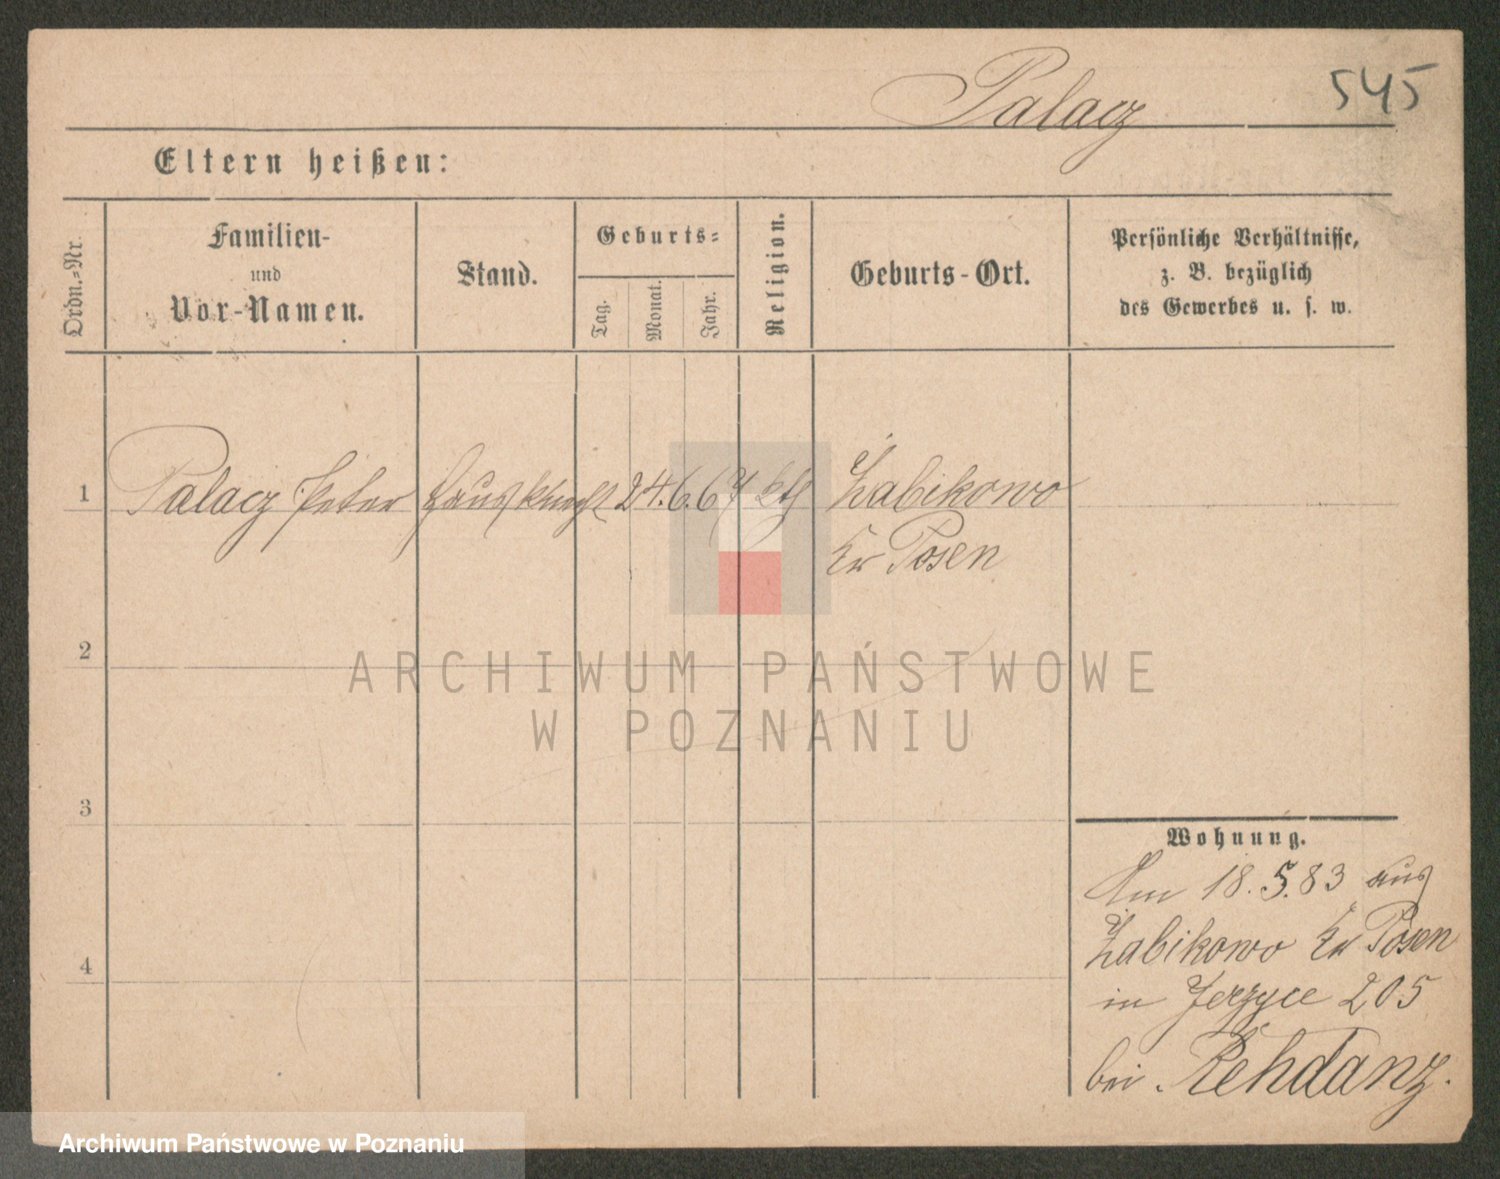 Palacz 545
Eltern heißen:
Ordn.-Nr.
Familien-
und
Vor-Namen.
Stand.
Geburts-
Tag.
Monat.
Jahr.
Religion.
Geburts-Ort.
Persönliche Verhältnisse,
z. B. bezüglich
des Gewerbes u. s. w.
1 Palacz Peter Hausknecht 24.6.67 kth Żabikowo
Kr Posen
2
3
4
Wohnung.
Am 18.5.83 aus
Żabikowo Kr Posen
in Jerzyce 205
bei Rehdanz.
ARCHIWUM PAŃSTWOWE
W POZNANIU
Archiwum Państwowe w Poznaniu